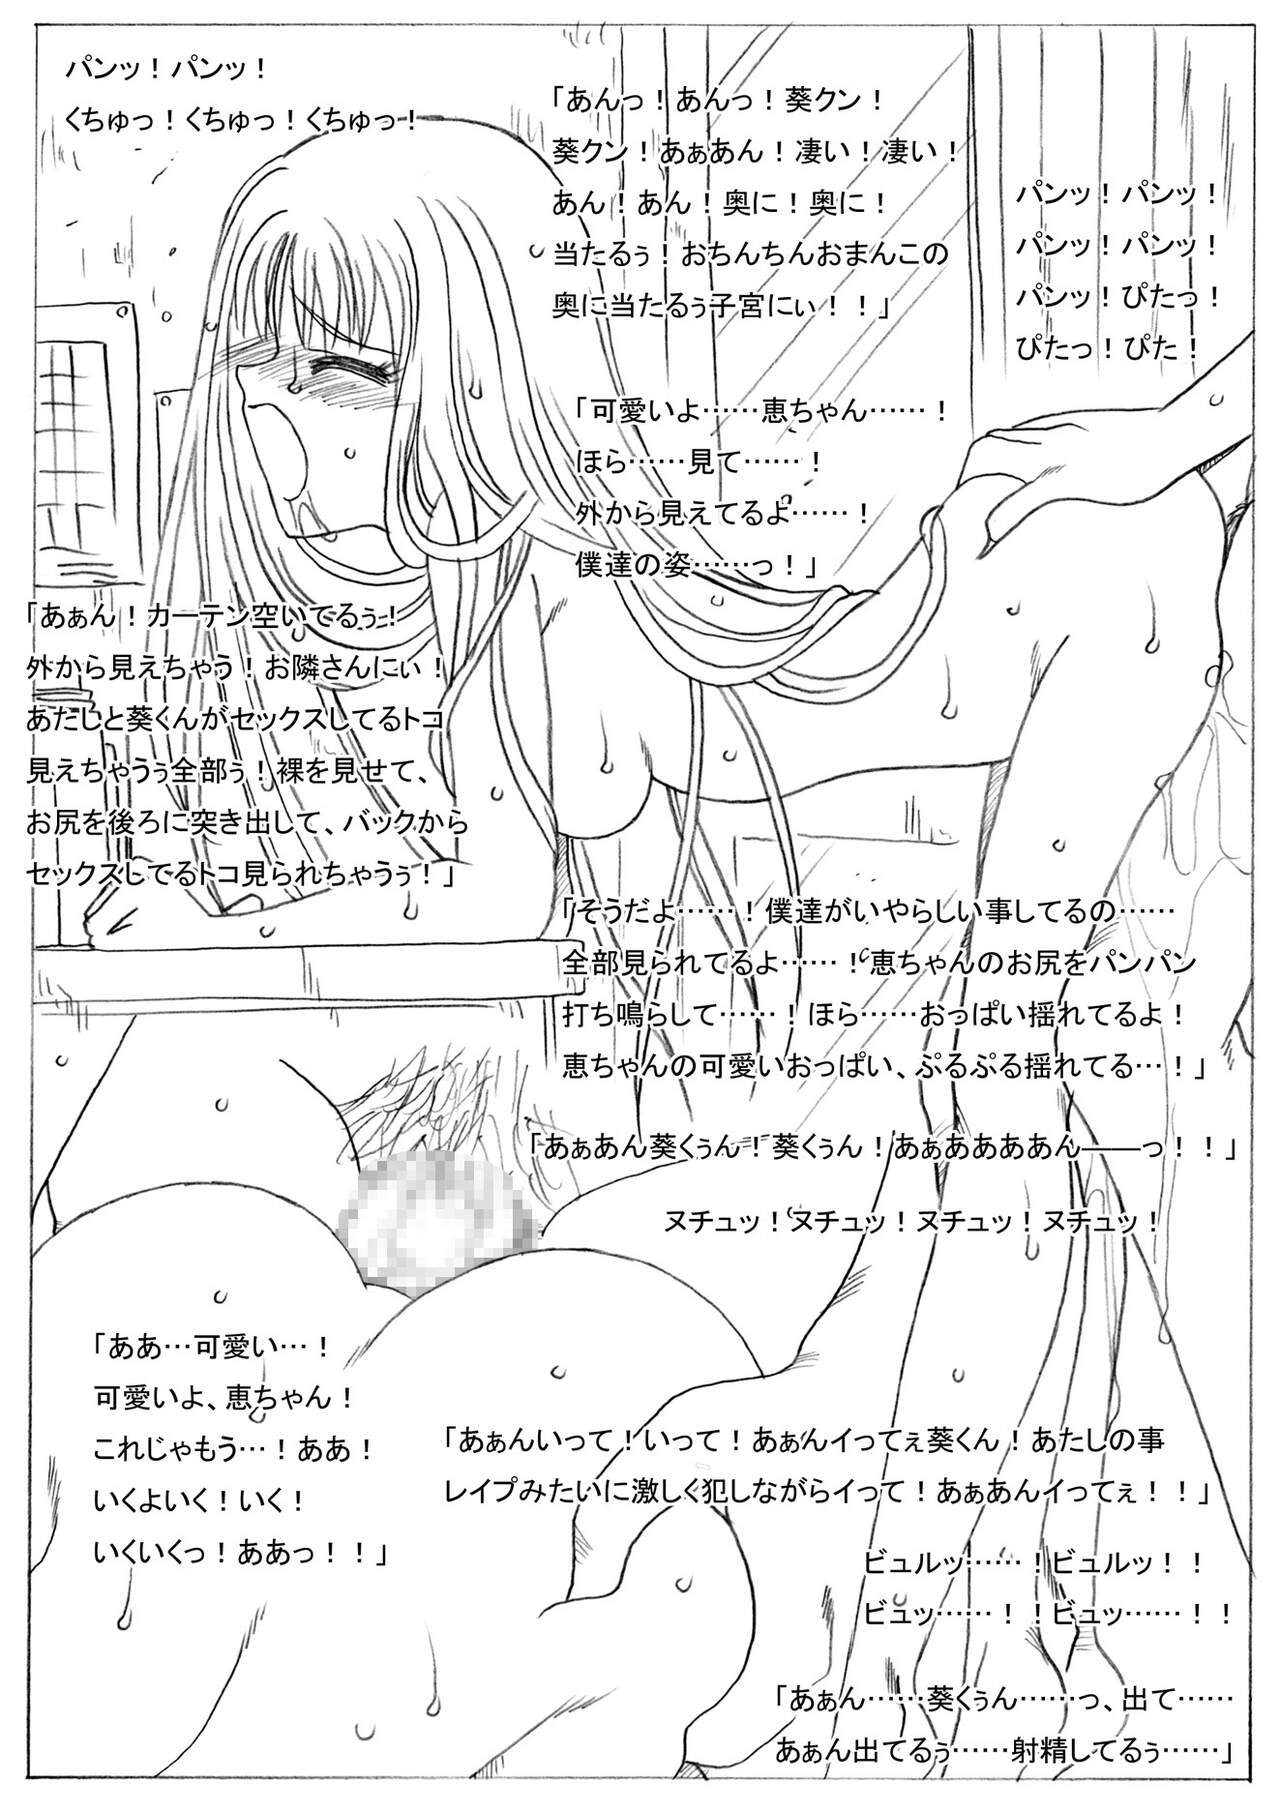 パンッ！パンッ！
くちゅっ！くちゅっ！くちゅっ！
「あんっ！あんっ！葵クン！
葵クン！あぁあん！凄い！凄い！
あん！あん！奥に！奥に！
当たるぅ！おちんちんおまんこの
奥に当たるぅ子宮にぃ！！」
パンッ！パンッ！
パンッ！パンッ！
パンッ！ぴたっ！
ぴたっ！ぴた！
「可愛いよ……恵ちゃん……！
ほら……見て……！
外から見えてるよ……！
僕達の姿……っ！」
「あぁん！カーテン空いてるぅ！
外から見えちゃう！お隣さんにぃ！
あたしと葵くんがセックスしてるトコ
見えちゃうぅ全部ぅ！裸を見せて、
お尻を後ろに突き出して、バックから
セックスしてるトコ見られちゃうぅ！」
「そうだよ……！僕達がいやらしい事してるの……
全部見られてるよ……！恵ちゃんのお尻をパンパン
打ち鳴らして……！ほら……おっぱい揺れてるよ！
恵ちゃんの可愛いおっぱい、ぷるぷる揺れてる…！」
「あぁあん葵くぅん！葵くぅん！あぁああああん――っ！！」
ヌチュッ！ヌチュッ！ヌチュッ！ヌチュッ！
「ああ…可愛い…！
可愛いよ、恵ちゃん！
これじゃもう…！ああ！
いくよいく！いく！
いくいくっ！ああっ！！」
「あぁんいって！いって！あぁんイってぇ葵くん！あたしの事
レイプみたいに激しく犯しながらイって！あぁあんイってぇ！！」
ビュルッ……！ビュルッ！！
ビュッ……！！ビュッ……！！
「あぁん……葵くぅん……っ、出て……
あぁん出てるぅ……射精してるぅ……」